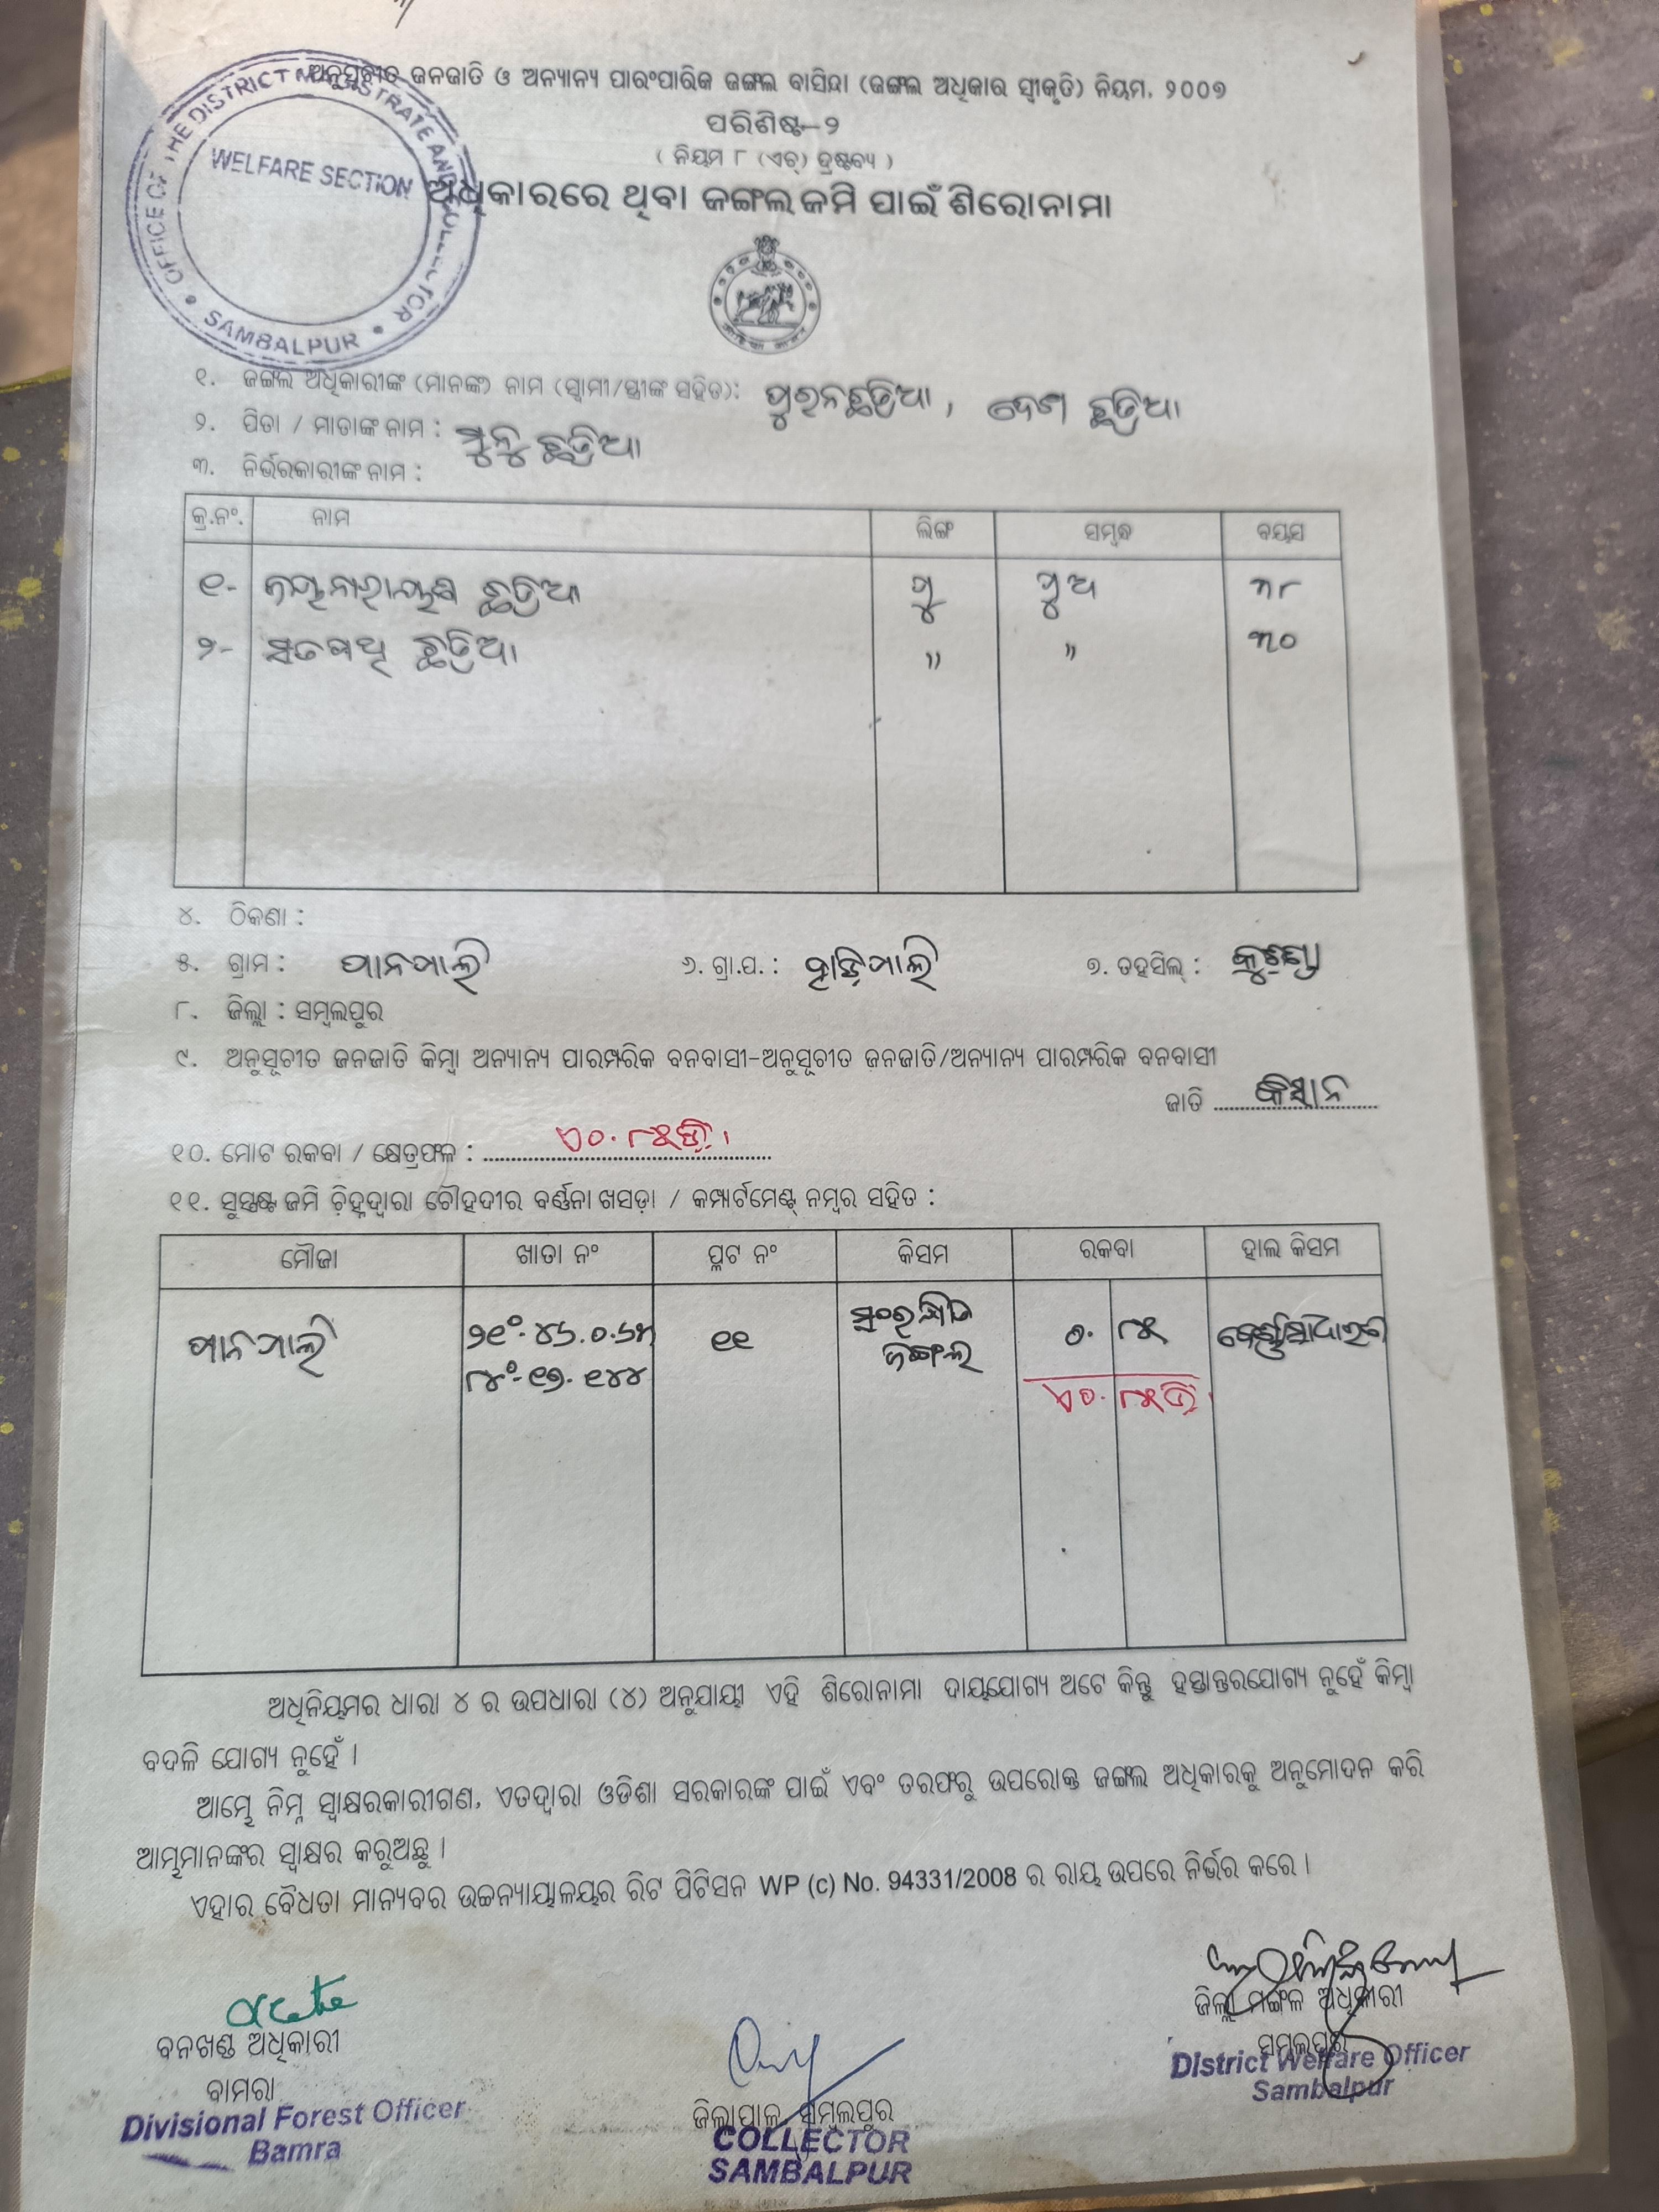 ଅନୁସୂଚୀତ ଜନଜାତି ଓ ଅନ୍ୟାନ୍ୟ ପାରଂପାରିକ ଜଙ୍ଗଲ ବାସିନ୍ଦା (ଜଙ୍ଗଲ ଅଧିକାର ସ୍ୱୀକୃତି) ନିୟମ, ୨୦୦୭
OFFICE OF THE DISTRICT MAGISTRATE AND COLLECTOR
WELFARE SECTION
SAMBALPUR
ପରିଶିଷ୍ଟ-୨
( ନିୟମ ୮ (ଏଚ୍) ଦ୍ରଷ୍ଟବ୍ୟ )
ଅଧିକାରରେ ଥିବା ଜଙ୍ଗଲ ଜମି ପାଇଁ ଶିରୋନାମା
୧. ଜଙ୍ଗଲ ଅଧିକାରୀଙ୍କ (ମାନଙ୍କ) ନାମ (ସ୍ୱାମୀ/ସ୍ତ୍ରୀଙ୍କ ସହିତ): ପୁରନ ଛତ୍ରିଆ, ଛତ୍ରିଆ
୨. ପିତା / ମାତାଙ୍କ ନାମ : ଛତ୍ରିଆ
୩. ନିର୍ଭରକାରୀଙ୍କ ନାମ :
କ୍ର.ନଂ. ନାମ ଲିଙ୍ଗ ସମ୍ବନ୍ଧ ବୟସ
୧- ଜୟନାରାୟଣ ଛତ୍ରିଆ ପୁ ପୁଅ ୩୮
୨- ଛତ୍ରିଆ " " ୩୦
୪. ଠିକଣା :
୫. ଗ୍ରାମ : ପାନପାଲି ୬. ଗ୍ରା.ପ. : ହାଡ଼ିପାଲି ୭. ତହସିଲ୍ :
୮. ଜିଲ୍ଲା : ସମ୍ବଲପୁର
୯. ଅନୁସୂଚୀତ ଜନଜାତି କିମ୍ବା ଅନ୍ୟାନ୍ୟ ପାରମ୍ପରିକ ବନବାସୀ-ଅନୁସୂଚୀତ ଜନଜାତି/ଅନ୍ୟାନ୍ୟ ପାରମ୍ପରିକ ବନବାସୀ
ଜାତି କିସାନ
୧୦. ମୋଟ ରକବା / କ୍ଷେତ୍ରଫଳ : ଏ୦.୮୫ଡି।
୧୧. ସୁସ୍ପଷ୍ଟ ଜମି ଚିହ୍ନଦ୍ୱାରା ଚୌହଦୀର ବର୍ଣ୍ଣନା ଖସଡ଼ା / କମ୍ପାର୍ଟମେଣ୍ଟ୍ ନମ୍ବର ସହିତ :
ମୌଜା ଖାତା ନଂ ପ୍ଲଟ ନଂ କିସମ ରକବା ହାଲ କିସମ
ପାନପାଲି ୧୧ ସଂରକ୍ଷିତ ୦. ୮୫
ଜଙ୍ଗଲ
୮୪°-୧୭.୧୪୪ ଏ୦.୮୫ଡି।
ଅଧିନିୟମର ଧାରା ୪ ର ଉପଧାରା (୪) ଅନୁଯାୟୀ ଏହି ଶିରୋନାମା ଦାୟଯୋଗ୍ୟ ଅଟେ କିନ୍ତୁ ହସ୍ତାନ୍ତରଯୋଗ୍ୟ ନୁହେଁ କିମ୍ବା
ବଦଳି ଯୋଗ୍ୟ ନୁହେଁ ।
ଆମ୍ଭେ ନିମ୍ନ ସ୍ୱାକ୍ଷରକାରୀଗଣ, ଏତଦ୍ୱାରା ଓଡିଶା ସରକାରଙ୍କ ପାଇଁ ଏବଂ ତରଫରୁ ଉପରୋକ୍ତ ଜଙ୍ଗଲ ଅଧିକାରକୁ ଅନୁମୋଦନ କରି
ଆମ୍ଭମାନଙ୍କର ସ୍ୱାକ୍ଷର କରୁଅଛୁ ।
ଏହାର ବୈଧତା ମାନ୍ୟବର ଉଚ୍ଚନ୍ୟାୟାଳୟର ରିଟ ପିଟିସନ WP (c) No. 94331/2008 ର ରାୟ ଉପରେ ନିର୍ଭର କରେ ।
ବନଖଣ୍ଡ ଅଧିକାରୀ
ବାମରା
Divisional Forest Officer
Bamra
ଜିଲ୍ଲାପାଳ, ସମ୍ବଲପୁର
COLLECTOR
SAMBALPUR
ଜିଲ୍ଲା ମଙ୍ଗଳ ଅଧିକାରୀ
ସମ୍ବଲପୁର
District Welfare Officer
Sambalpur